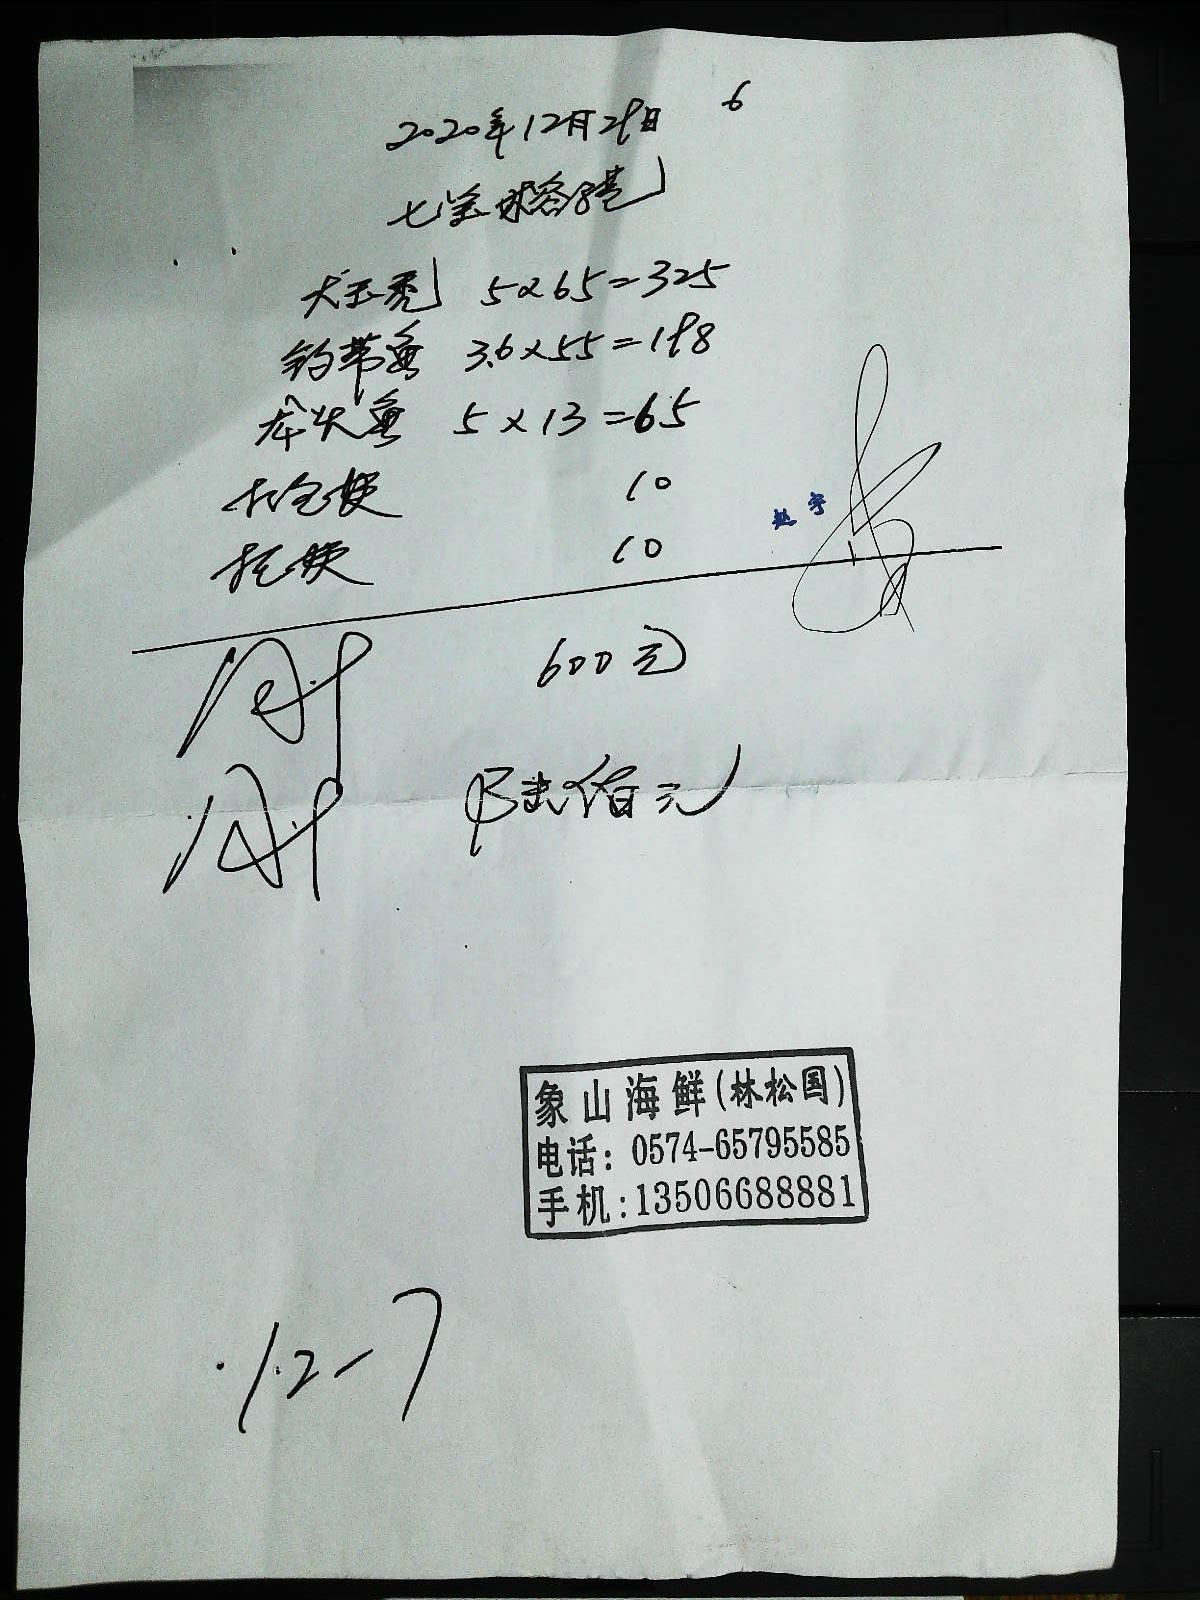 2020年12月29日 6
七宝
大玉秃 5×65=325
钓带鱼 3.6×55=198
龙头鱼 5×13=65
打包费 10
托费 10
600元
陆佰元
象山海鲜(林松国)
电话: 0574-65795585
手机:13506688881
12-7